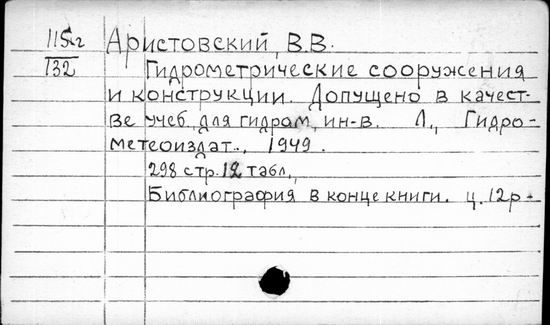 115г Аристовский, В.В.
132 Гидрометрические сооружения
и конструкции. Допущено в качест-
ве учеб. для гидром. ин-в. Л., Гидро-
метеоиздат., 1949.
298 стр. 12 табл.,
Библиография в конце книги. ц. 12р-